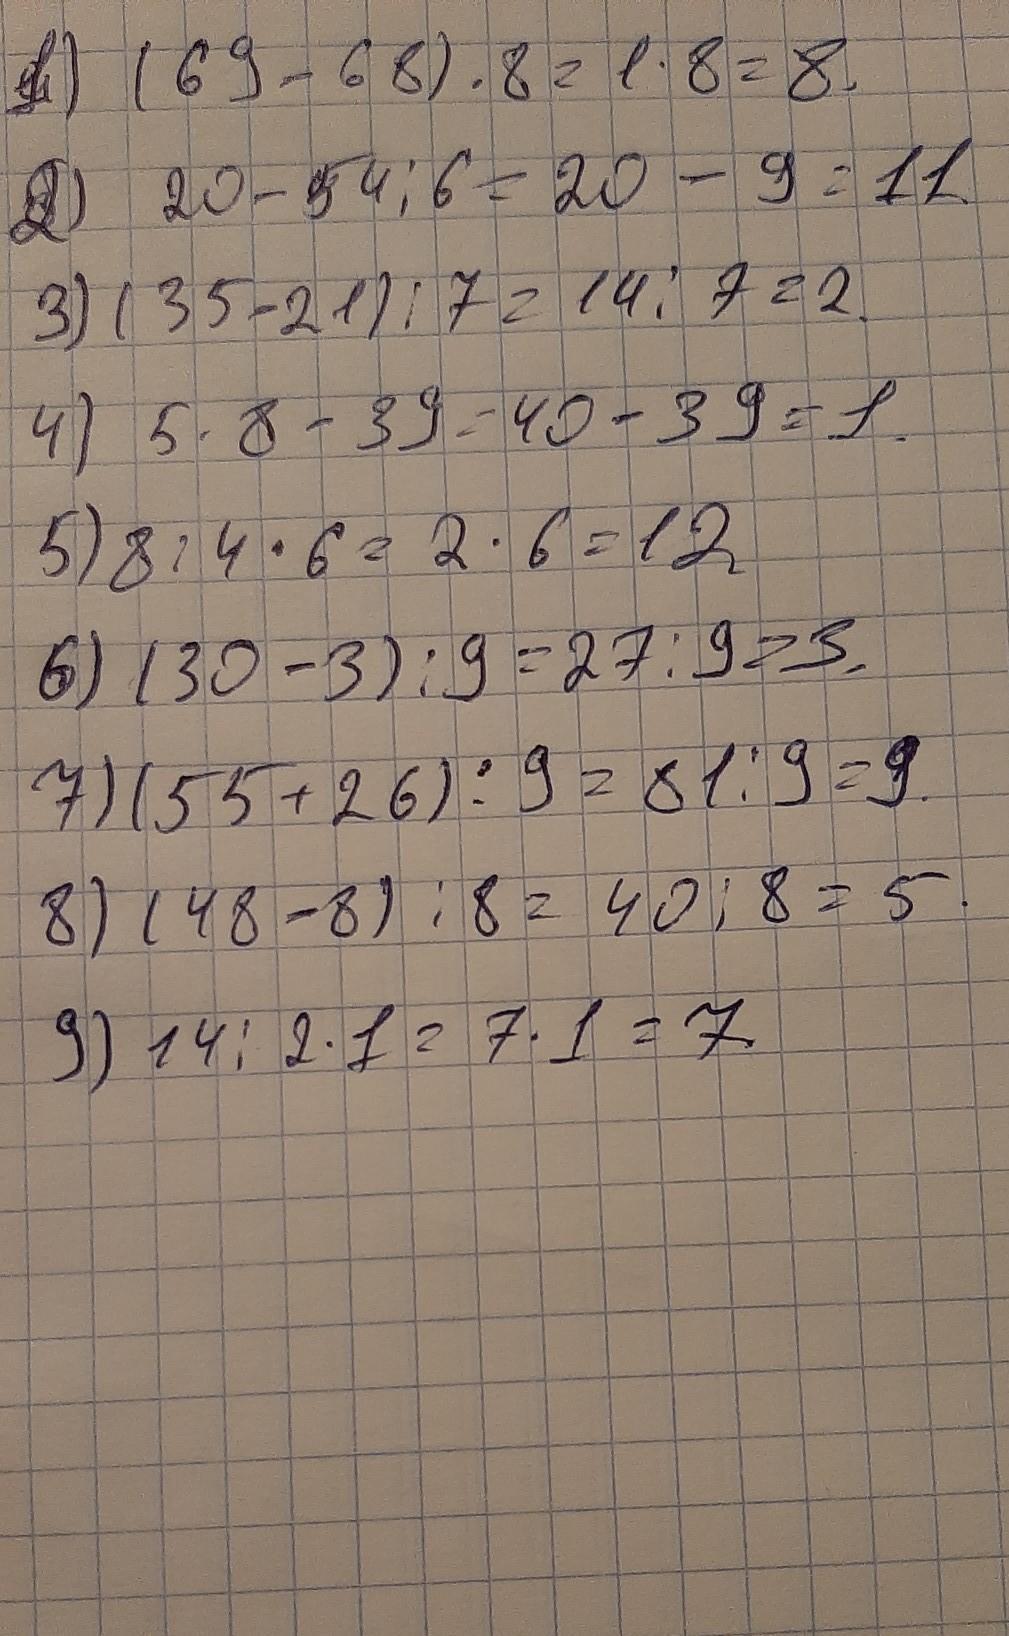 1) (69-68)·8=1·8=8.
2) 20-54:6=20-9=11
3) (35-21):7=14:7=2.
4) 5·8-39=40-39=1.
5) 8:4·6=2·6=12
6) (30-3):9=27:9=3.
7) (55+26):9=81:9=9.
8) (48-8):8=40:8=5.
9) 14:2·1=7·1=7.